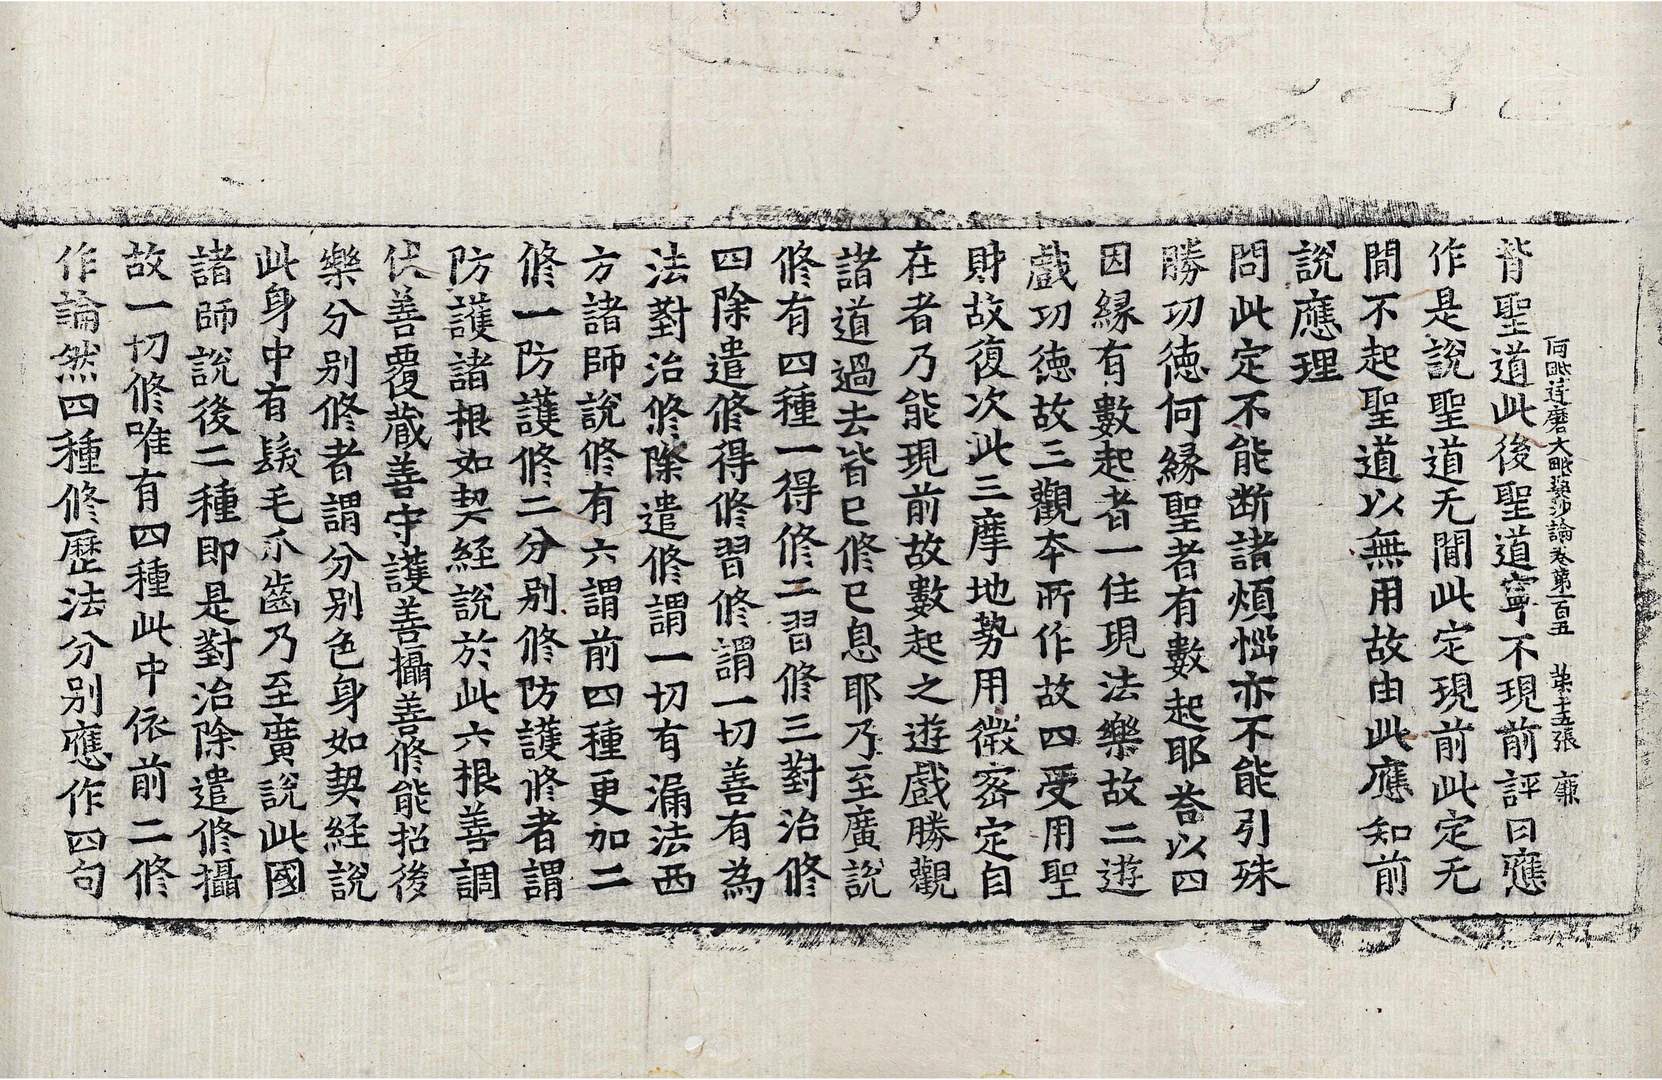 阿毗達磨大毗婆沙論卷第一百五　第十五張　廉
背聖道此後聖道寧不現前評曰應
作是說聖道无間此定現前此定无
間不起聖道以無用故由此應知前
說應理
問此定不能断諸煩惱亦不能引殊
勝功徳何縁聖者有數起耶荅以四
因縁有數起者一住現法樂故二遊
戲功徳故三觀本所作故四受用聖
財故復次此三摩地勢用微密定自
在者乃能現前故數起之遊戲勝觀
諸道過去皆已修已息耶乃至廣說
修有四種一得修二習修三對治修
四除遣修得修習修謂一切善有為
法對治修除遣修謂一切有漏法西
方諸師說修有六謂前四種更加二
修一防護修二分別修防護修者謂
防護諸根如契経說於此六根善調
伏善覆蔵善守護善攝善修能招後
樂分別修者謂分別色身如契経說
此身中有髮毛爪齒乃至廣說此國
諸師說後二種即是對治除遣修攝
故一切修唯有四種此中依前二修
作論然四種修歷法分別應作四句